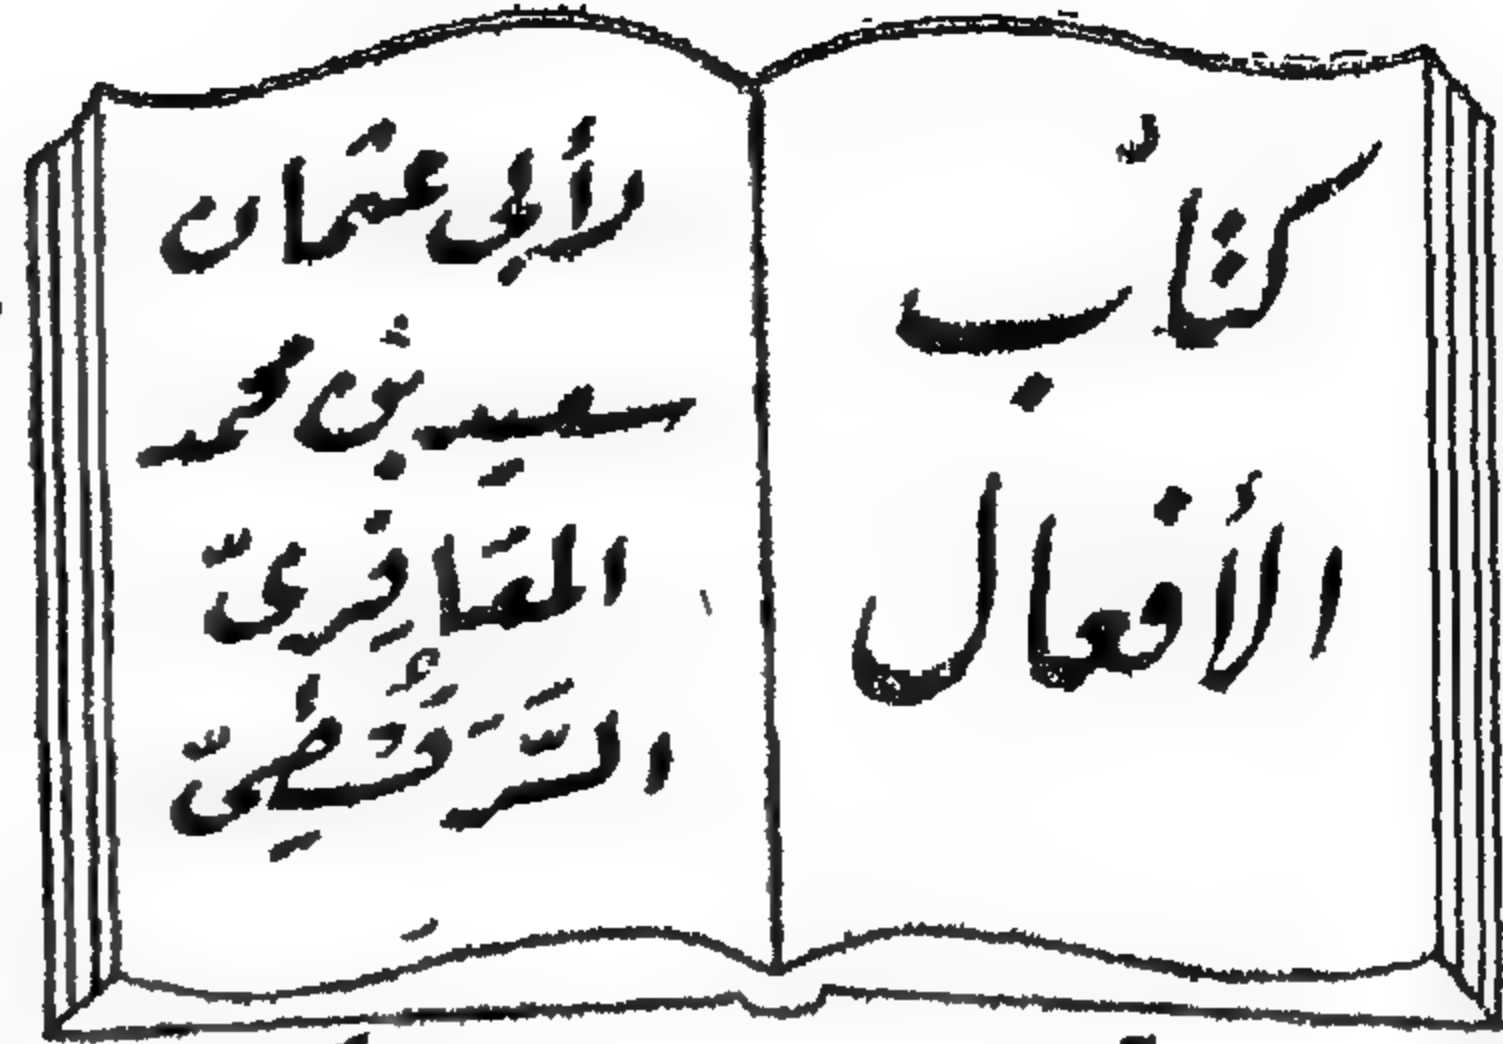 كتابُ
الأفعال
لأبي عثمان
سعيد بن محمد
المعَافِريّ
السَّرَقُسْطِيّ